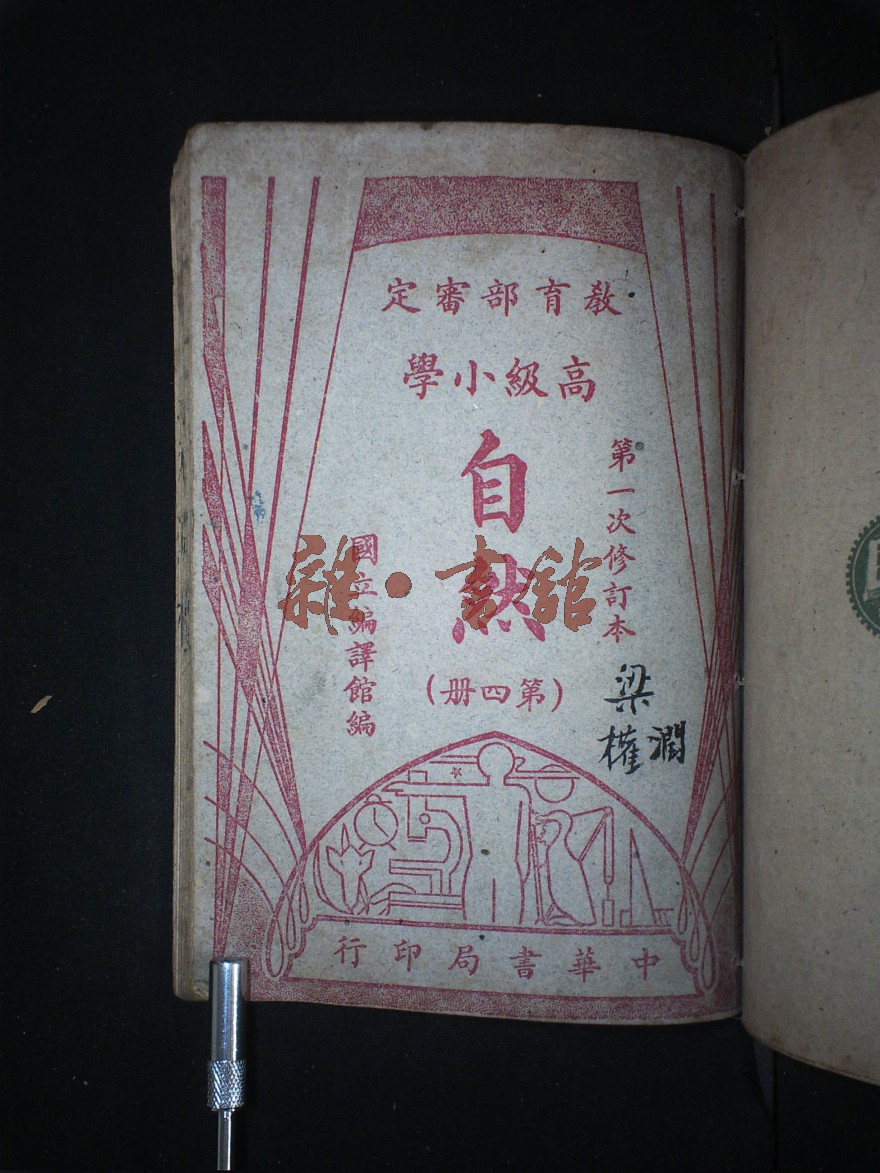 教育部審定
高級小學
第一次修訂本
自然
(第四册)
國立編譯館編
梁
權潤
中華書局印行
雜·書館